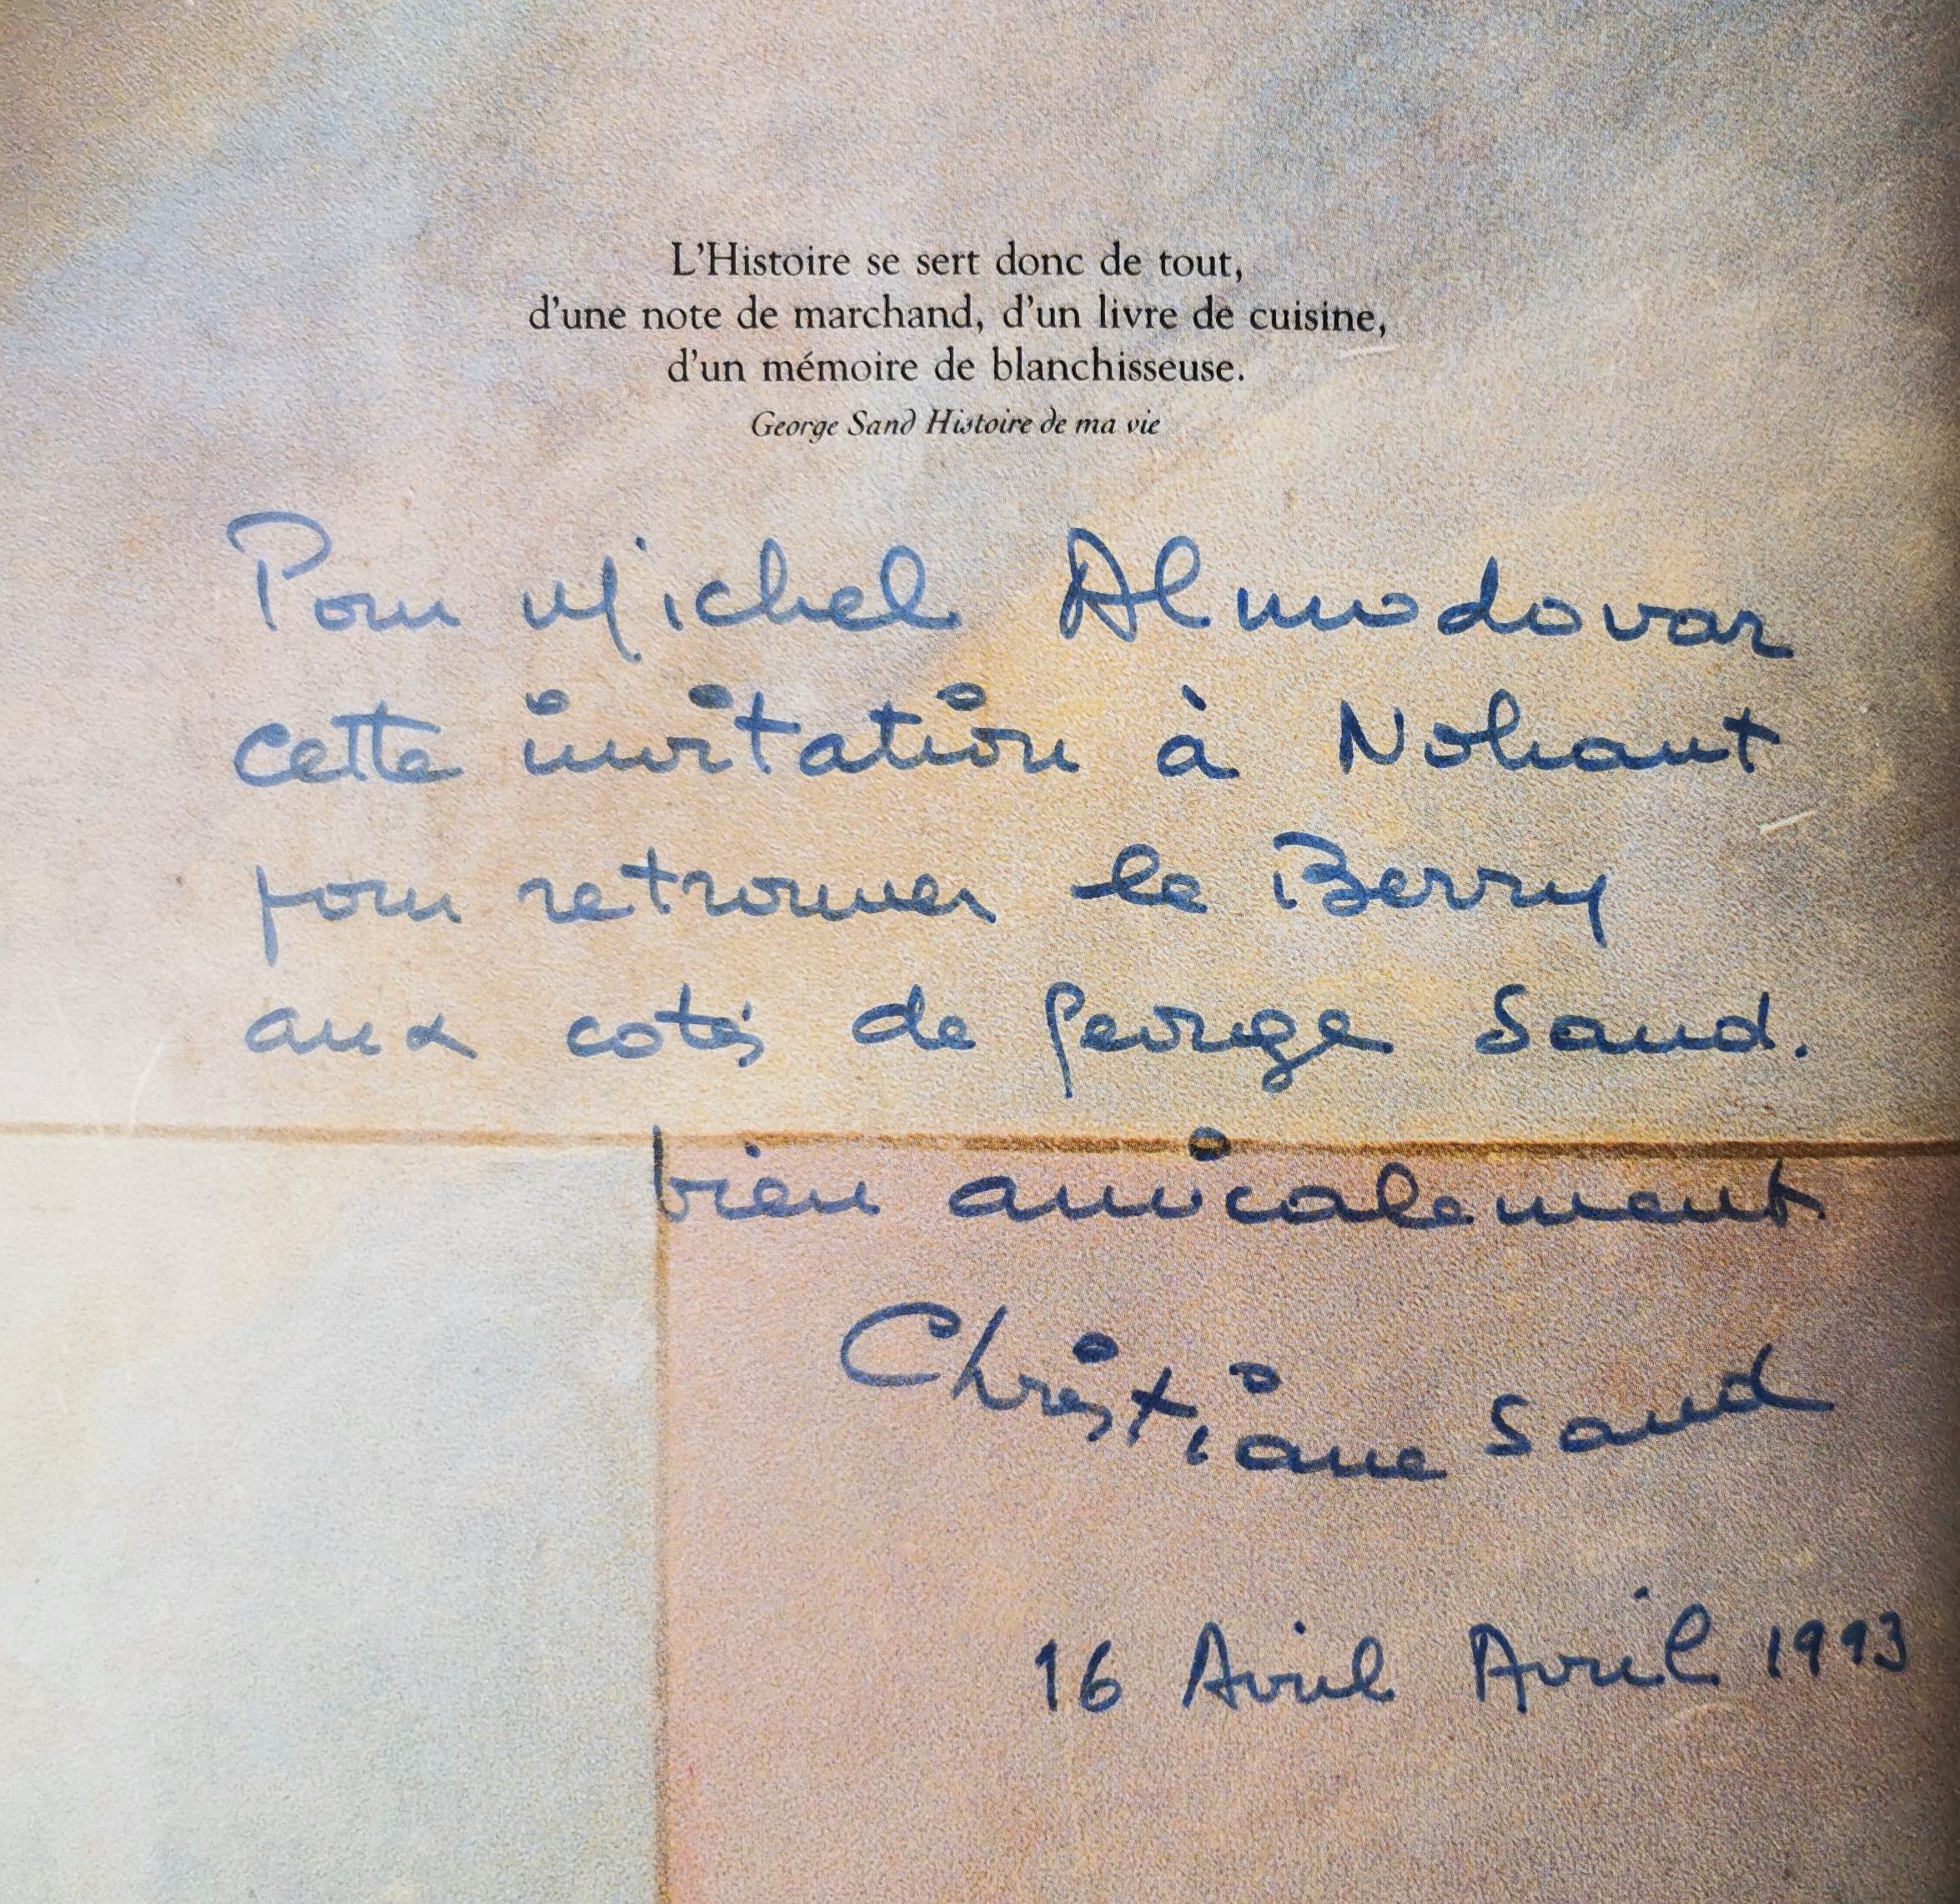 L'Histoire se sert donc de tout,
d'une note de marchand, d'un livre de cuisine,
d'un mémoire de blanchisseuse.
George Sand Histoire de ma vie
Pour Michel Almodovar
cette invitation à Nohant
pour retrouver le Berry
aux cotés de George Sand.
bien amicalement
Christiane Sand
16 Avril Avril 1993